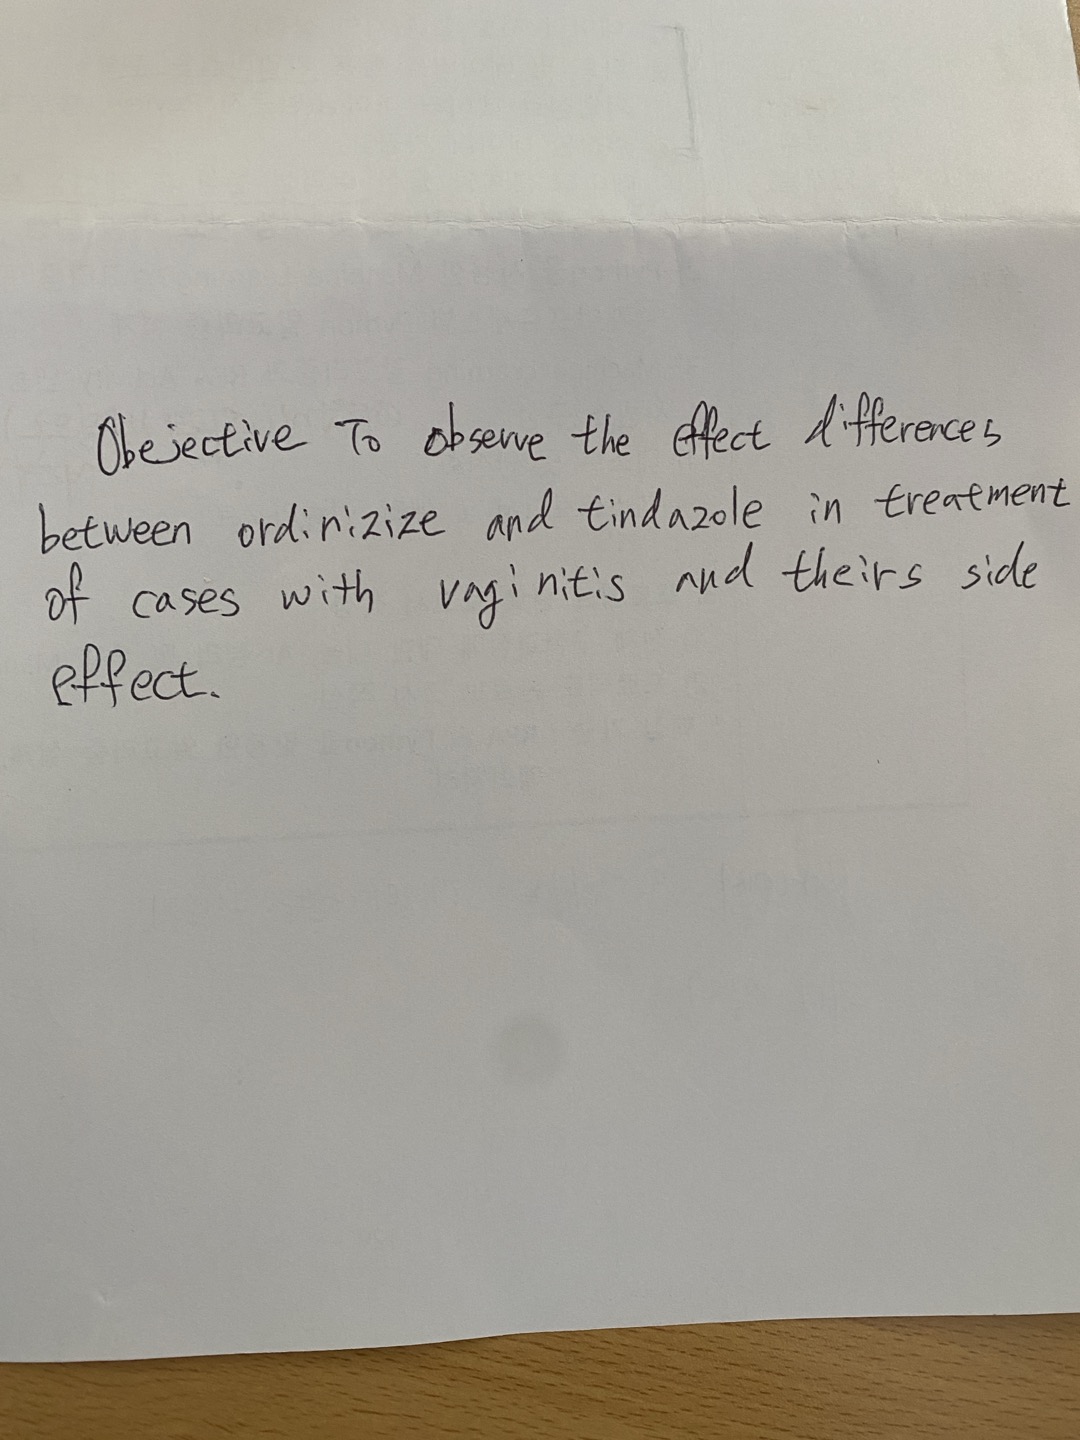 Obejective To observe the effect differences
between ordinizize and tindazole in treatment
of cases with vaginitis and theirs side
effect.